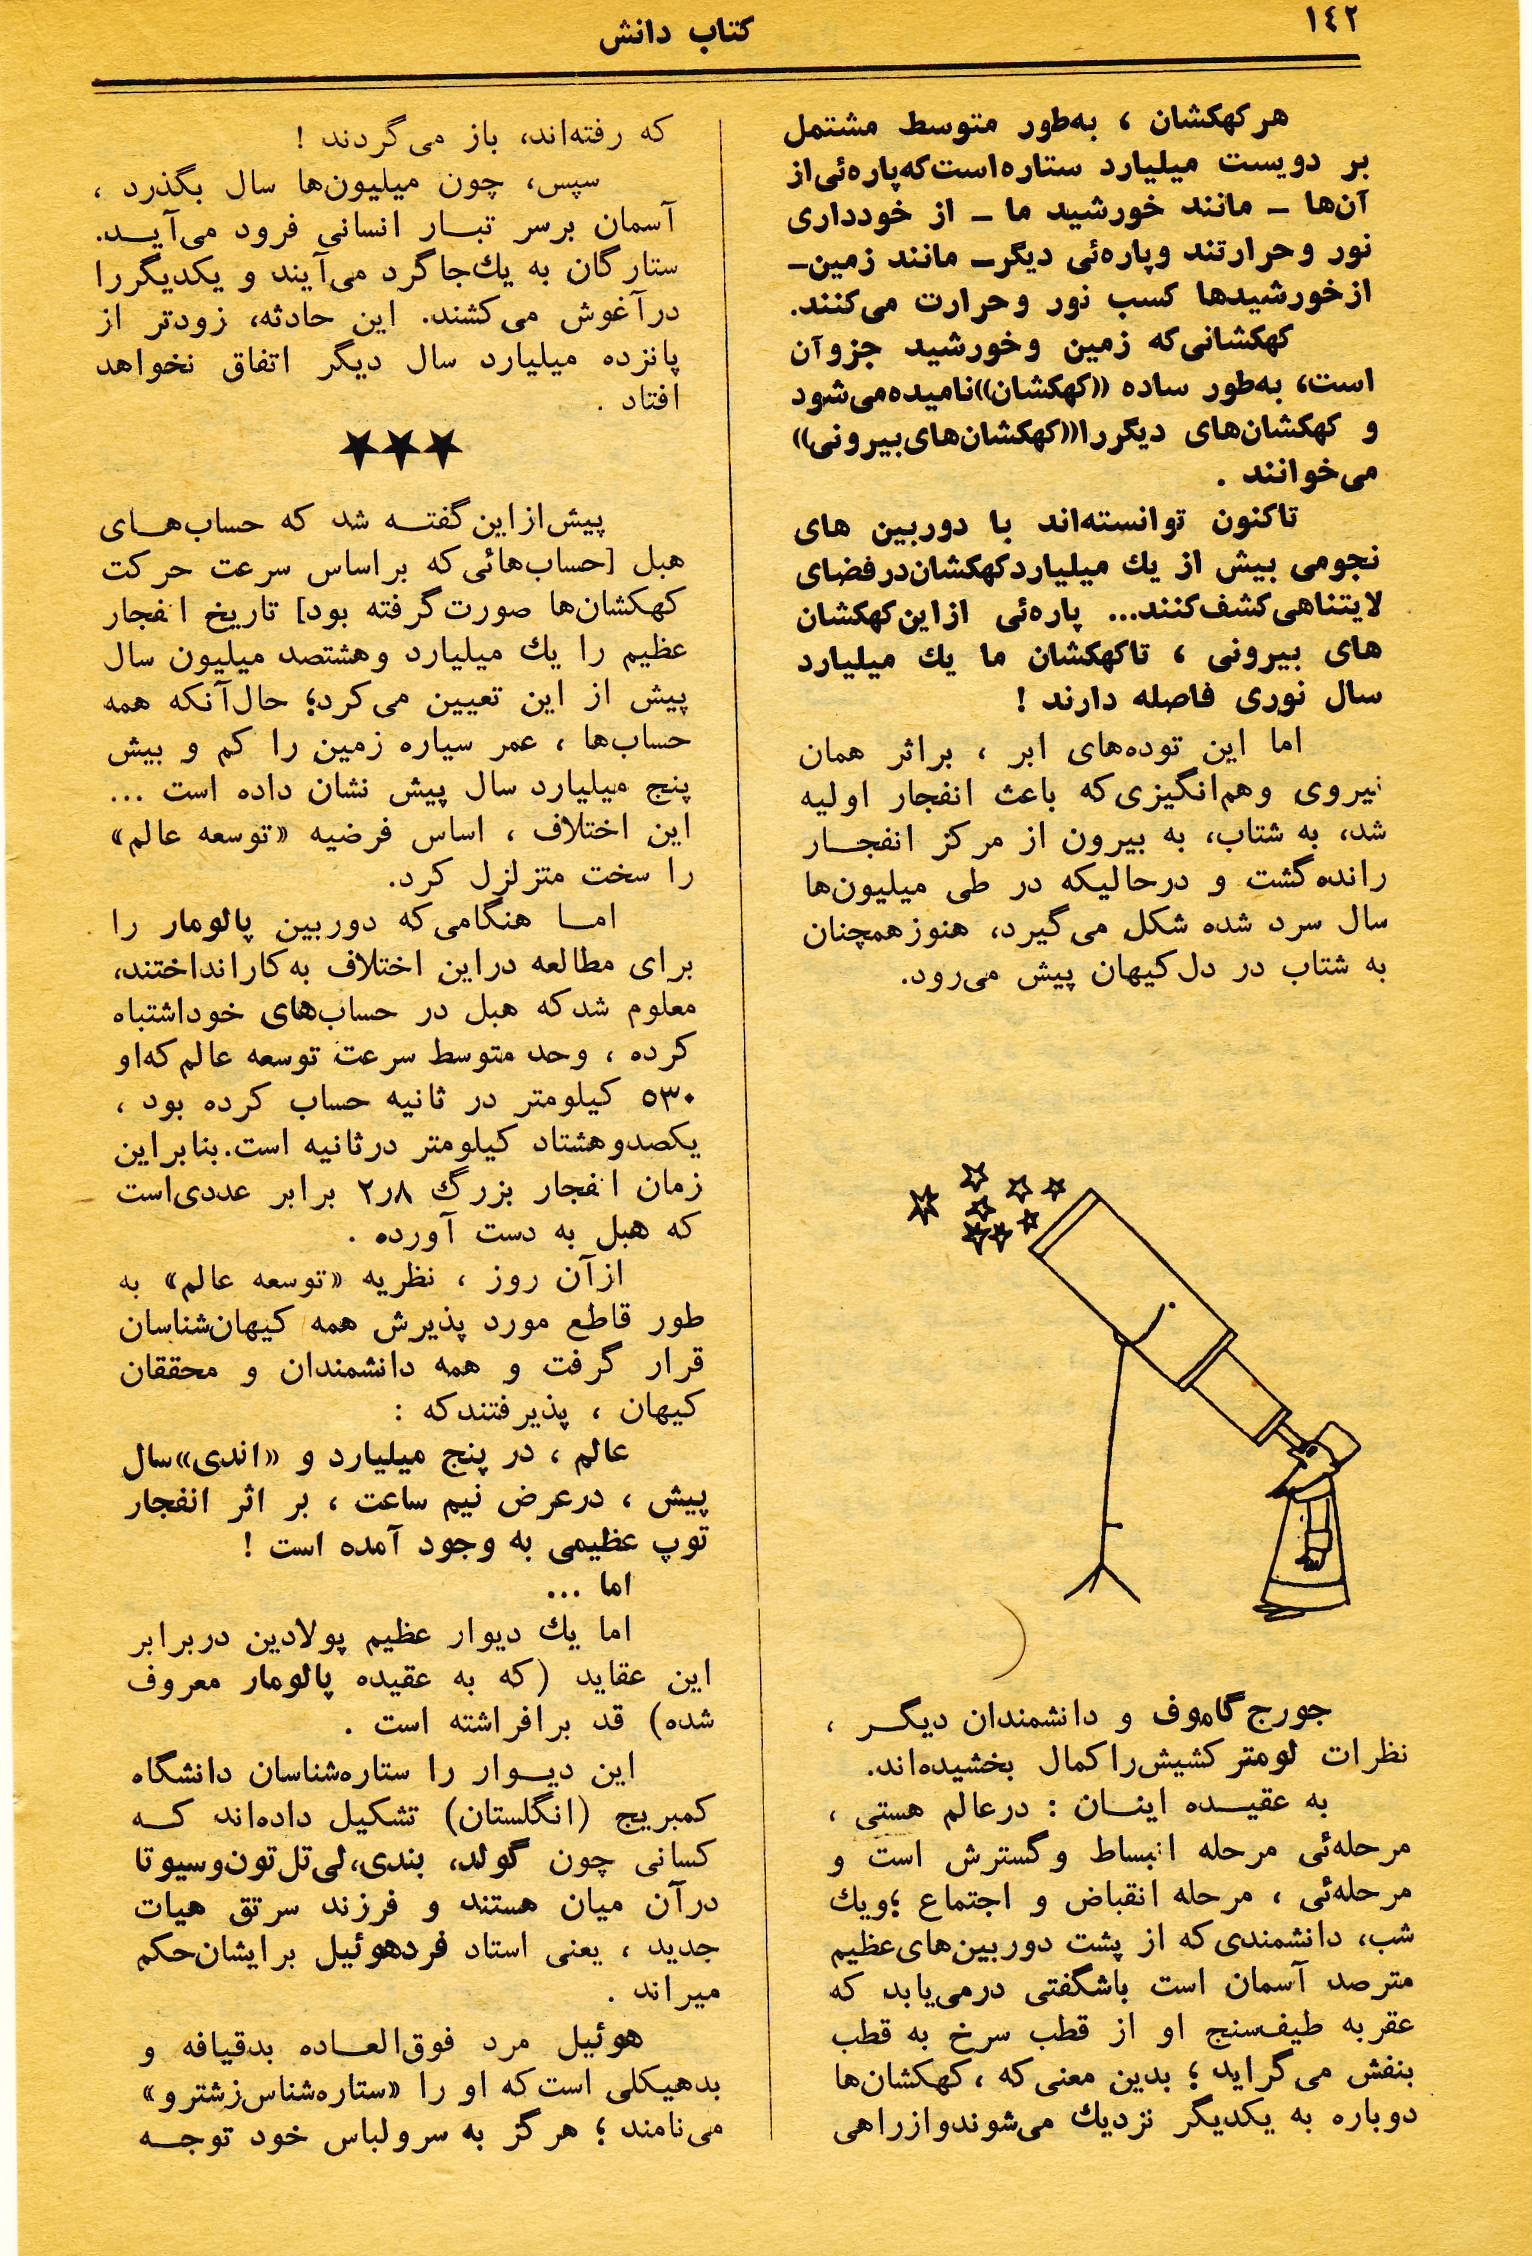 ١٤٢
کتاب دانش
هر کهکشان ، به‌طور متوسط مشتمل
بر دویست میلیارد ستاره است که پاره‌ئی از
آن‌ها ـ مانند خورشید ما ـ از خود دارای
نور و حرارتند و پاره‌ئی دیگر ـ مانند زمین ـ
از خورشیدها کسب نور و حرارت می‌کنند.
کهکشانی که زمین و خورشید جزو آن
است، به‌طور ساده ((کهکشان)) نامیده می‌شود
و کهکشان‌های دیگر را ((کهکشان‌های بیرونی))
می‌خوانند .
تاکنون توانسته‌اند با دوربین های
نجومی بیش از یك میلیارد کهکشان در فضای
لایتناهی کشف کنند... پاره‌ئی از این کهکشان
های بیرونی ، تا کهکشان ما یك میلیارد
سال نوری فاصله دارند !
اما این توده‌های ابر ، بر اثر همان
نیروی وهم‌انگیزی که باعث انفجار اولیه
شد، به شتاب، به بیرون از مرکز انفجـار
رانده گشت و درحالیکه در طی میلیون‌ها
سال سرد شده شکل می‌گیرد، هنوز همچنان
به شتاب در دل کیهان پیش می‌رود.
جورج گاموف و دانشمندان دیگـر ،
نظرات لومتر کشیش را کمال بخشیده‌اند.
به عقیـده اینـان : در عالم هستی ،
مرحله‌ئی مرحله انبساط و گسترش است و
مرحله‌ئی ، مرحله انقباض و اجتماع ؛ و یك
شب، دانشمندی که از پشت دوربین‌های عظیم
مترصد آسمان است با شگفتی در می‌یابد که
عقربه طیف‌سنج او از قطب سرخ به قطب
بنفش می‌گراید ؛ بدین معنی که ، کهکشان‌ها
دوباره به یکدیگر نزدیك می‌شوند و از راهی
که رفته‌اند، باز می‌گردند !
سپس، چون میلیون‌ها سال بگذرد ،
آسمان بر سر تبـار انسانی فرود می‌آیـد.
ستارگان به یك جا گرد می‌آیند و یکدیگر را
در آغوش می‌کشند. این حادثه، زودتر از
پانزده میلیارد سال دیگر اتفاق نخواهد
افتاد .
★★★
پیش از این گفتـه شد که حساب‌هـای
هبل [حساب‌هائی که بر اساس سرعت حرکت
کهکشان‌ها صورت گرفته بود] تاریخ انفجار
عظیم را یك میلیارد و هشتصد میلیون سال
پیش از این تعیین می‌کرد؛ حال آنکه همه
حساب‌ها ، عمر سیاره زمین را کم و بیش
پنج میلیارد سال پیش نشان داده است ...
این اختلاف ، اساس فرضیه «توسعه عالم»
را سخت متزلزل کرد.
امـا هنگامی که دوربین پالومار را
برای مطالعه در این اختلاف به کار انداختند،
معلوم شد که هبل در حساب‌های خود اشتباه
کرده ، وحد متوسط سرعت توسعه عالم که او
۵۳۰ کیلومتر در ثانیه حساب کرده بود ،
یکصد و هشتاد کیلومتر در ثانیه است. بنابراین
زمان انفجار بزرگ ۲٫۸ برابر عددی است
که هبل به دست آورده .
از آن روز ، نظریه «توسعه عالم» به
طور قاطع مورد پذیرش همه کیهان‌شناسان
قرار گرفت و همه دانشمندان و محققان
کیهان ، پذیرفتند که :
عالم ، در پنج میلیارد و «اندی» سال
پیش ، در عرض نیم ساعت ، بر اثر انفجار
توپ عظیمی به وجود آمده است !
اما ...
اما یك دیوار عظیم پولادین در برابر
این عقاید (که به عقیده پالومار معروف
شده) قد برافراشته است .
این دیـوار را ستاره‌شناسان دانشگاه
کمبریج (انگلستان) تشکیل داده‌اند کـه
کسانی چون گولد، بندی، لی‌تل‌تون و سیوتا
در آن میان هستند و فرزند سرتق هیات
جدید ، یعنی استاد فرد هوئیل بر ایشان حکم
میراند .
هوئیل مرد فوق‌العـاده بدقیافه و
بدهیکلی است که او را «ستاره‌شناس زشترو»
می‌نامند ؛ هرگز به سر و لباس خود توجـه